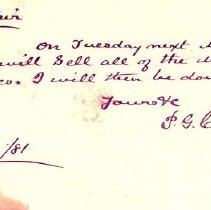 Sir
On Tuesday next
will sell all of the
I will then be
Yours &c
P. G.
/81